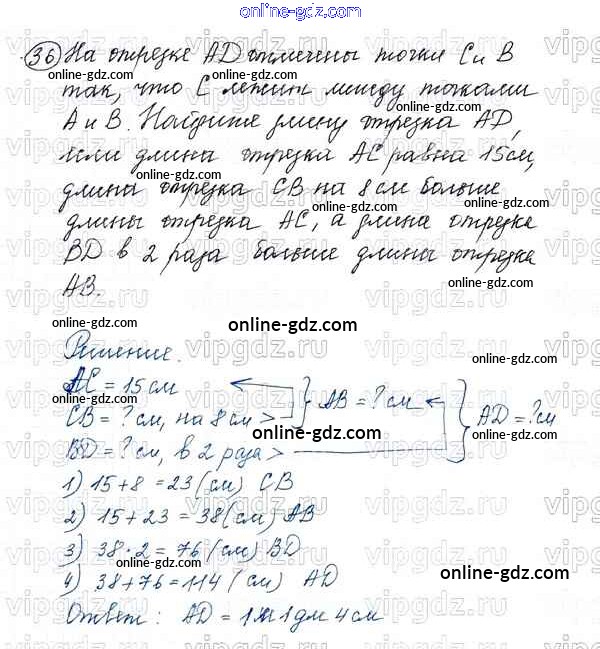 online-gdz.com
36 На отрезке AD отмечены точки C и B
online-gdz.com online-gdz.com
так, что C лежит между точками
online-gdz.com
A и B. Найдите длину отрезка AD,
если длина отрезка AC равна 15см,
online-gdz.com online-gdz.com
длина отрезка CB на 8 см больше
online-gdz.com
длины отрезка AC, а длина отрезка
BD в 2 раза больше длины отрезка
online-gdz.com online-gdz.com
AB.
online-gdz.com online-gdz.com
Решение. vipgdz.ru
online-gdz.com online-gdz.com
AC = 15 см
CB = ? см, на 8 см > AB = ? см AD = ? см
online-gdz.com
BD = ? см, в 2 раза >
online-gdz.com
1) 15 + 8 = 23 (см) CB
online-gdz.com online-gdz.com
2) 15 + 23 = 38 (см) AB
3) 38 · 2 = 76 (см) BD
online-gdz.com
4) 38 + 76 = 114 (см) AD
online-gdz.com
Ответ: AD = 1м 1дм 4см
online-gdz.com